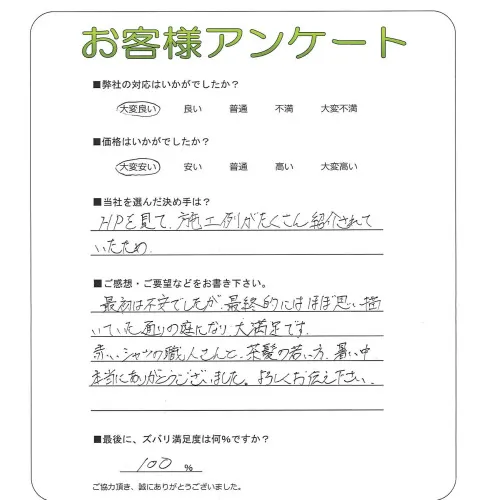 お客様アンケート
■弊社の対応はいかがでしたか？
大変良い 良い 普通 不満 大変不満
■価格はいかがでしたか？
大変安い 安い 普通 高い 大変高い
■当社を選んだ決め手は？
HPを見て、施工例がたくさん紹介されて
いたため、
■ご感想・ご要望などをお書き下さい。
最初は不安でしたが、最終的にはほぼ思い描
いていた通りの庭になり、大満足です。
赤いシャツの職人さんと、茶髪の若い方、暑い中
本当にありがとうございました。よろしくお伝え下さい。
■最後に、ズバリ満足度は何%ですか？
100 %
ご協力頂き、誠にありがとうございました。